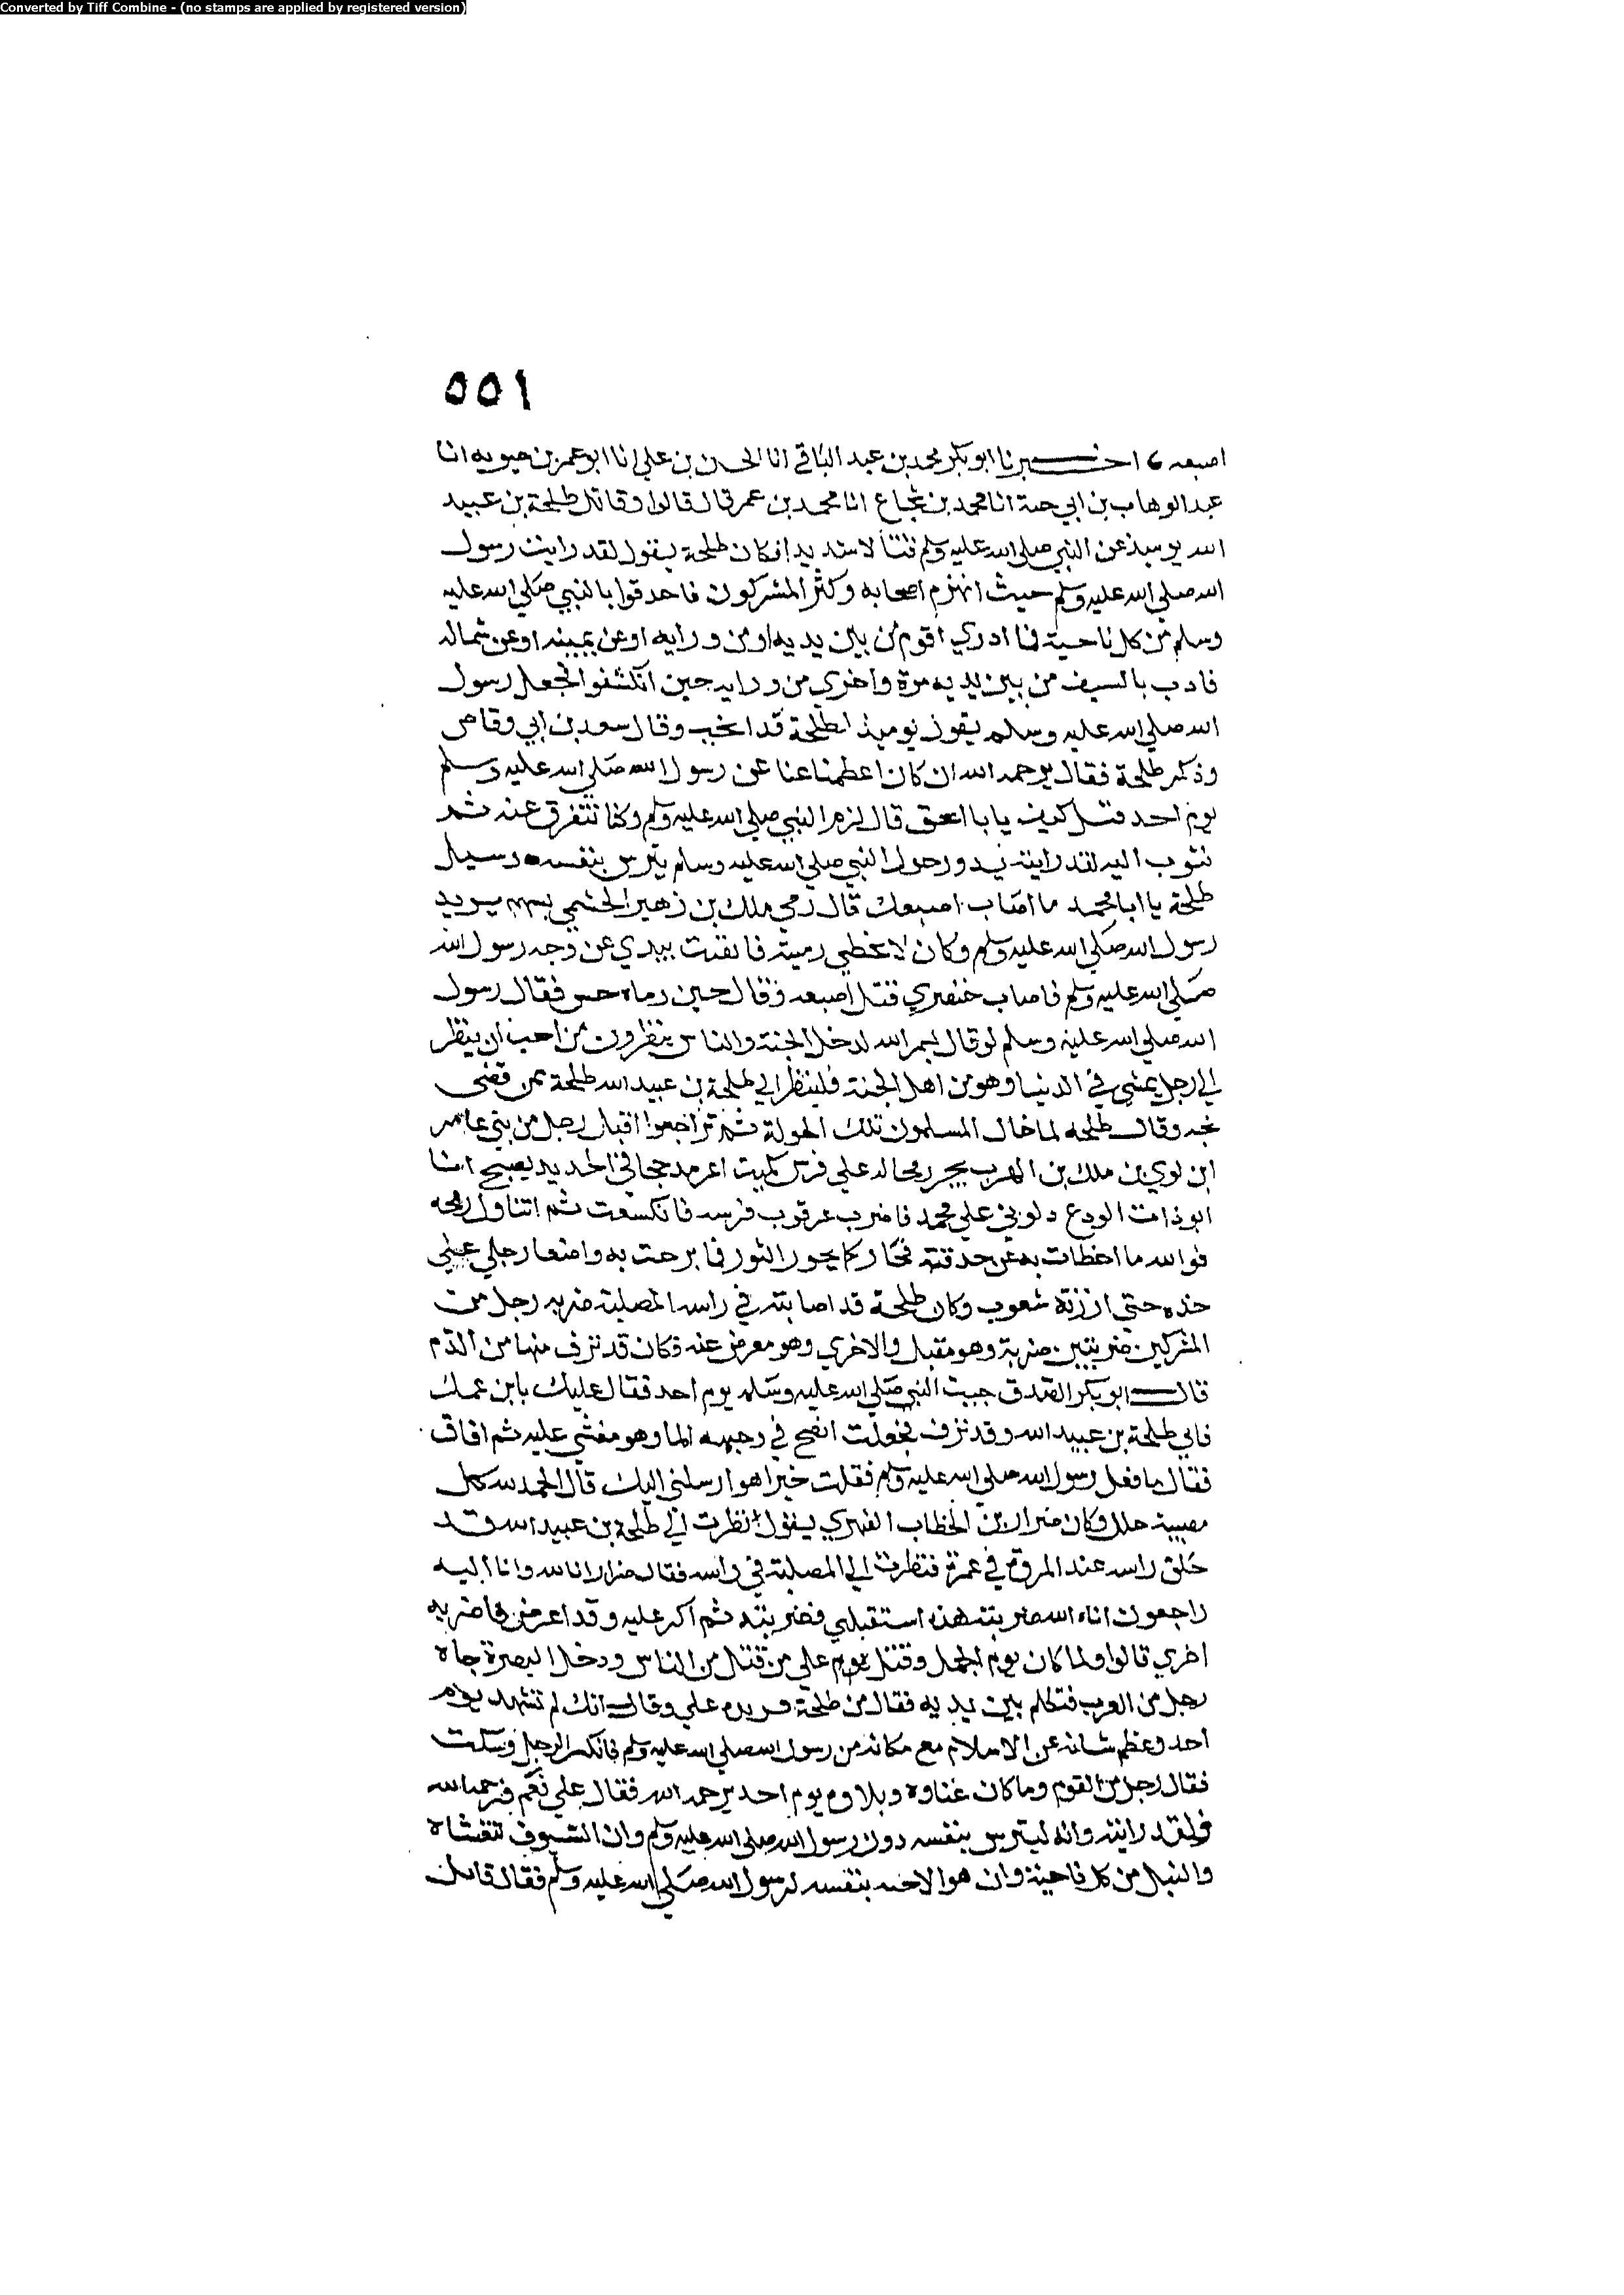 Converted by Tiff Combine - (no stamps are applied by registered version)
٥٥١
اصبعه اخبرنا ابو بكر محمد بن عبد الباقي انا الحسن بن علي انا ابو عمر بن حيويه انا
عبد الوهاب بن ابي حية انا محمد بن شجاع انا محمد بن عمر قال قالوا وقاتل طلحة بن عبيد
الله يوميذ عن النبي صلى الله عليه وسلم قتالا شديدا فكان طلحة يقول لقد رايت رسول
الله صلى الله عليه وسلم حيث انهزم اصحابه وكثر المشركون فاحدقوا بالنبي صلى الله عليه
وسلم من كل ناحية فما ادري اقوم من بين يديه او من ورايه او عن يمينه او عن شماله
فاذب بالسيف من بين يديه مرة واخري من ورايه حين انكشفوا فجعل رسول
الله صلى الله عليه وسلم يقول يوميذ لطلحة قد انحب وقال سعد بن ابي وقاص
وذكر طلحة فقال يرحمه الله ان كان اعظمنا عنا عن رسول الله صلى الله عليه وسلم
يوم احد قيل كيف يابا اسحق قال لزم النبي صلى الله عليه وسلم وكنا نتفرق عنه ثم
نثوب اليه لقد رايته يدور حول النبي صلى الله عليه وسلم يترس بنفسه وسيل
طلحة يا ابا محمد ما اصاب اصبعك قال رمي ملك بن زهير الجشمي بسهم يريد
رسول الله صلى الله عليه وسلم وكان لا تخطي رميته فاتقيت بيدي عن وجه رسول الله
صلى الله عليه وسلم فاصاب خنصري فشل اصبعه وقال حين رماه حس فقال رسول
الله صلى الله عليه وسلم لو قال بسم الله لدخل الجنة والناس ينظرون من احب ان ينظر
الي رجل يمشي في الدنيا وهو من اهل الجنة فلينظر الي طلحة بن عبيد الله طلحة ممن قضى
نحبه وقال طلحه لما جال المسلمون تلك الجولة ثم تراجعوا اقبل رجل من بني عامر
ابن لوي بن ملك بن المضرب يجر رمحا له علي فرس كميت اغر مدججا في الحديد يصيح انا
ابو ذات الودع دلوني علي محمد فاضرب عرقوب فرسه فانكسعت ثم اتناول رمحه
فوالله ما اخطات به عن حدقته فخار كما يخور الثور فما برحت به واضعا رجلي علي
خده حتي ازرته شعوب وكان طلحة قد اصابته في راسه المصلبة ضربه رجل من
المشركين ضربتين ضربة وهو مقبل والاخري وهو معرض عنه فكان قد نزف منها من الدم
قال ابو بكر الصدق جيت النبي صلى الله عليه وسلم يوم احد فقال عليك بابن عمك
فاتي طلحة بن عبيد الله وقد نزف فجعلت انضح في وجهه الما وهو مغشي عليه ثم افاق
فقال ما فعل رسول الله صلى الله عليه وسلم فقلت خيرا هو ارسلني اليك قال الحمد لله كل
مصيبة جلل وكان ضرار بن الخطاب الفهري يقول نظرت الي طلحة بن عبيد الله قد
حلق راسه عند المروة في عمرة فنظرت الي المصلبة في راسه فقال ضرار انا لله وانا اليه
راجعون انا والله ضربته هذه استقبلني فضربته ثم اكر عليه وقد اعرض فاضربه
اخري قالوا ولما كان يوم الجمل وقتل علي من قتل من الناس ودخل البصرة جاه
رجل من العرب فتكلم بين يديه فقال من طلحة علي وقال انك لم تشهد يوم
احد وعظم شانه عن الاسلام مع مكانه من رسول الله صلى الله عليه وسلم فانكسر الرجل وسكت
فقال رجل من القوم وما كان غناوه وبلاوه يوم احد يرحمه الله فقال علي نعم فرحمه الله
فلقد رايته وانه ليترس بنفسه دون رسول الله صلى الله عليه وسلم وان السيوف لتغشاه
والنبل من كل ناحية وان هو الا جنه بنفسه لرسول الله صلى الله عليه وسلم فقال قايل